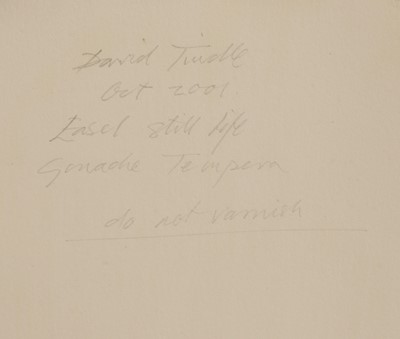 David Tindle
Oct 2001
Easel still life
Gouache Tempera
do not varnish